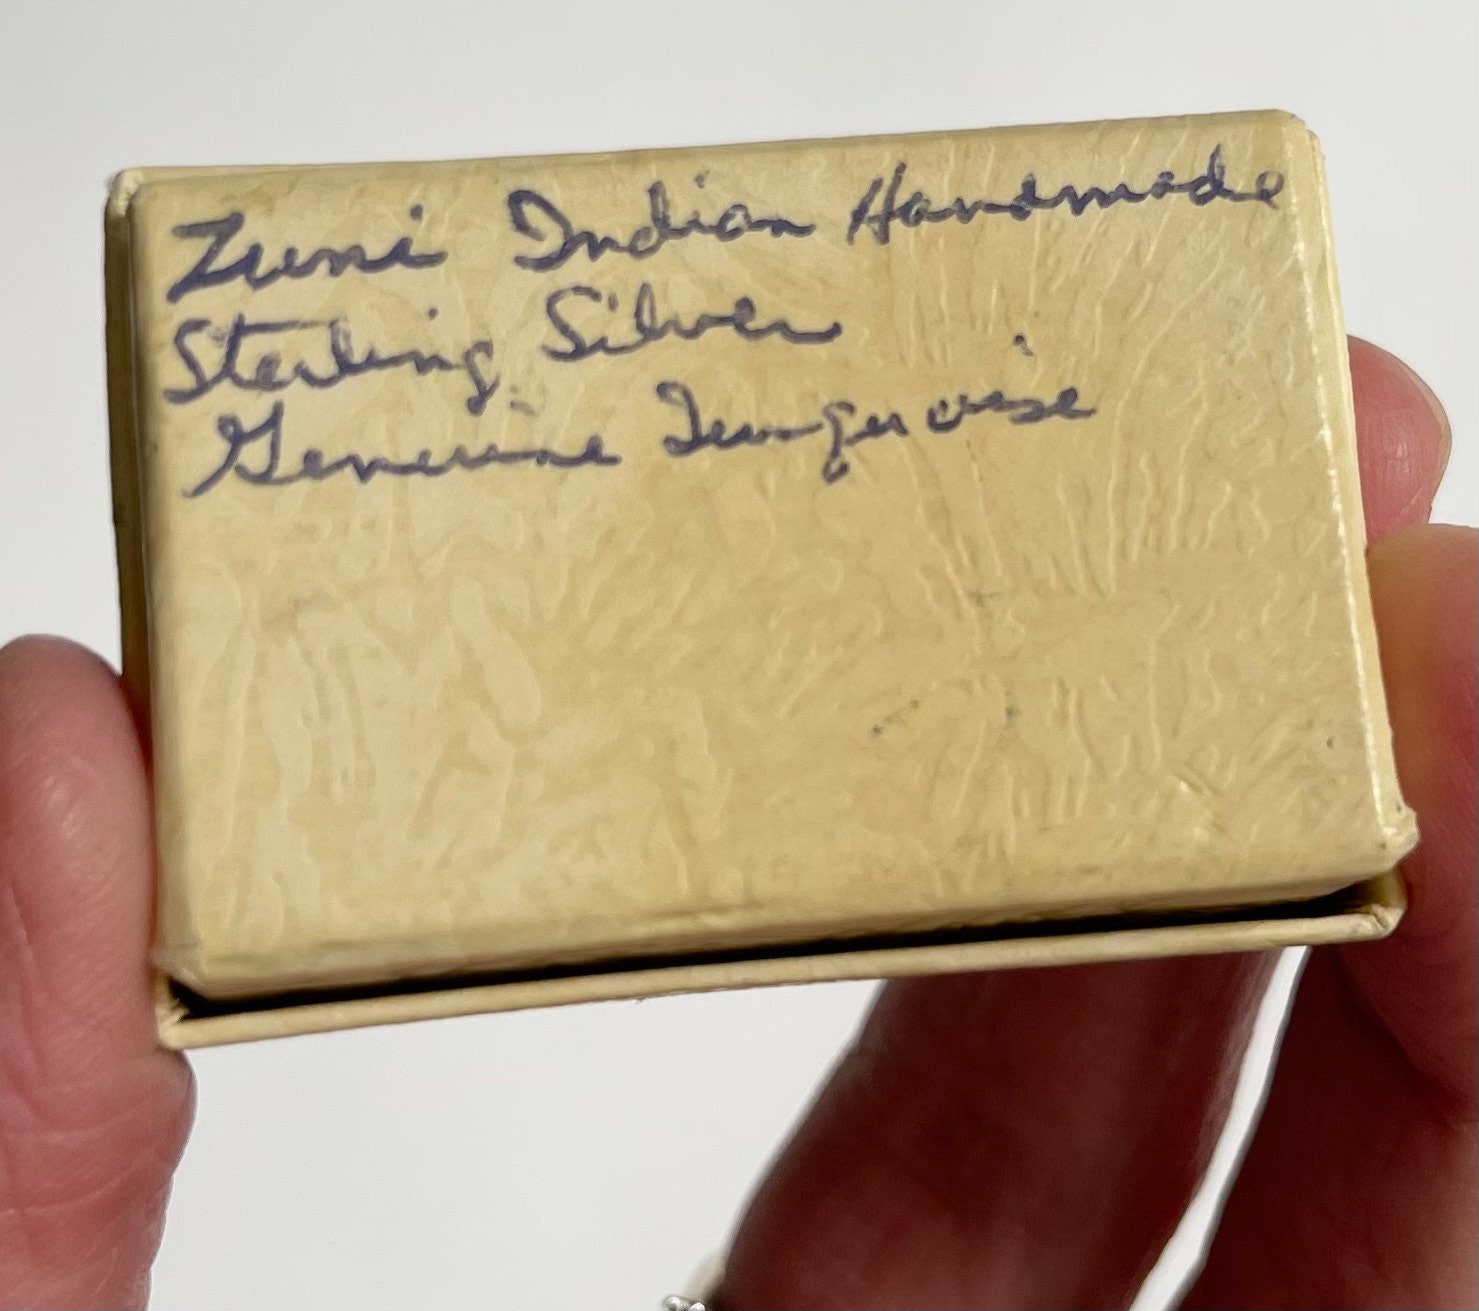 Zuni Indian Handmade
Sterling Silver
Genuine Turquoise